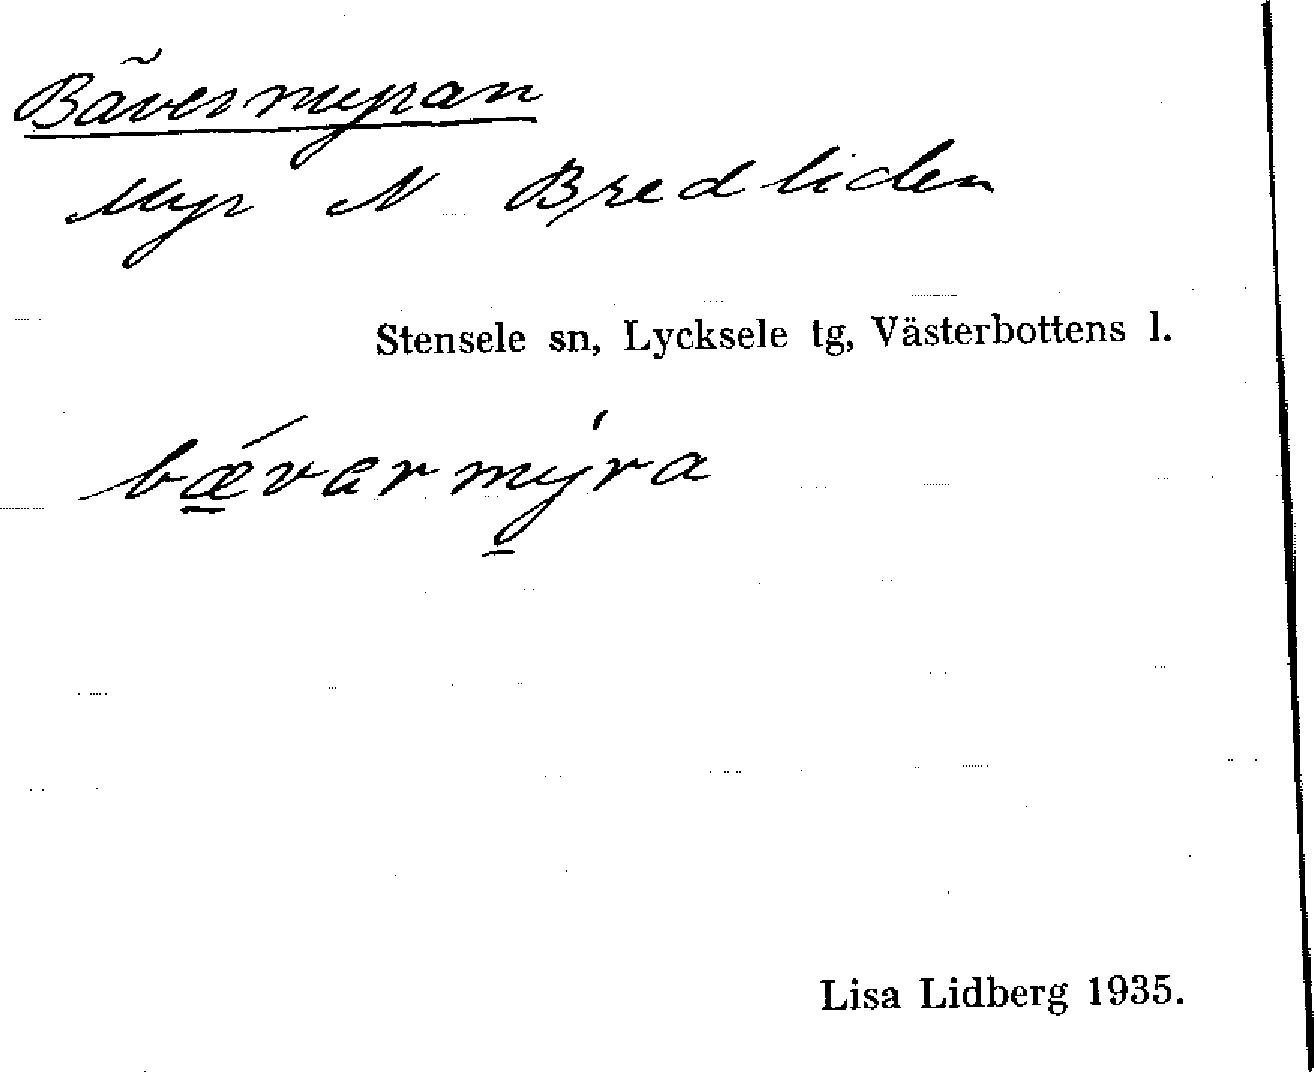 Bävermyran
Myr N Bredliden
Stensele sn, Lycksele tg, Västerbottens l.
bǽvarmýra
Lisa Lidberg 1935.